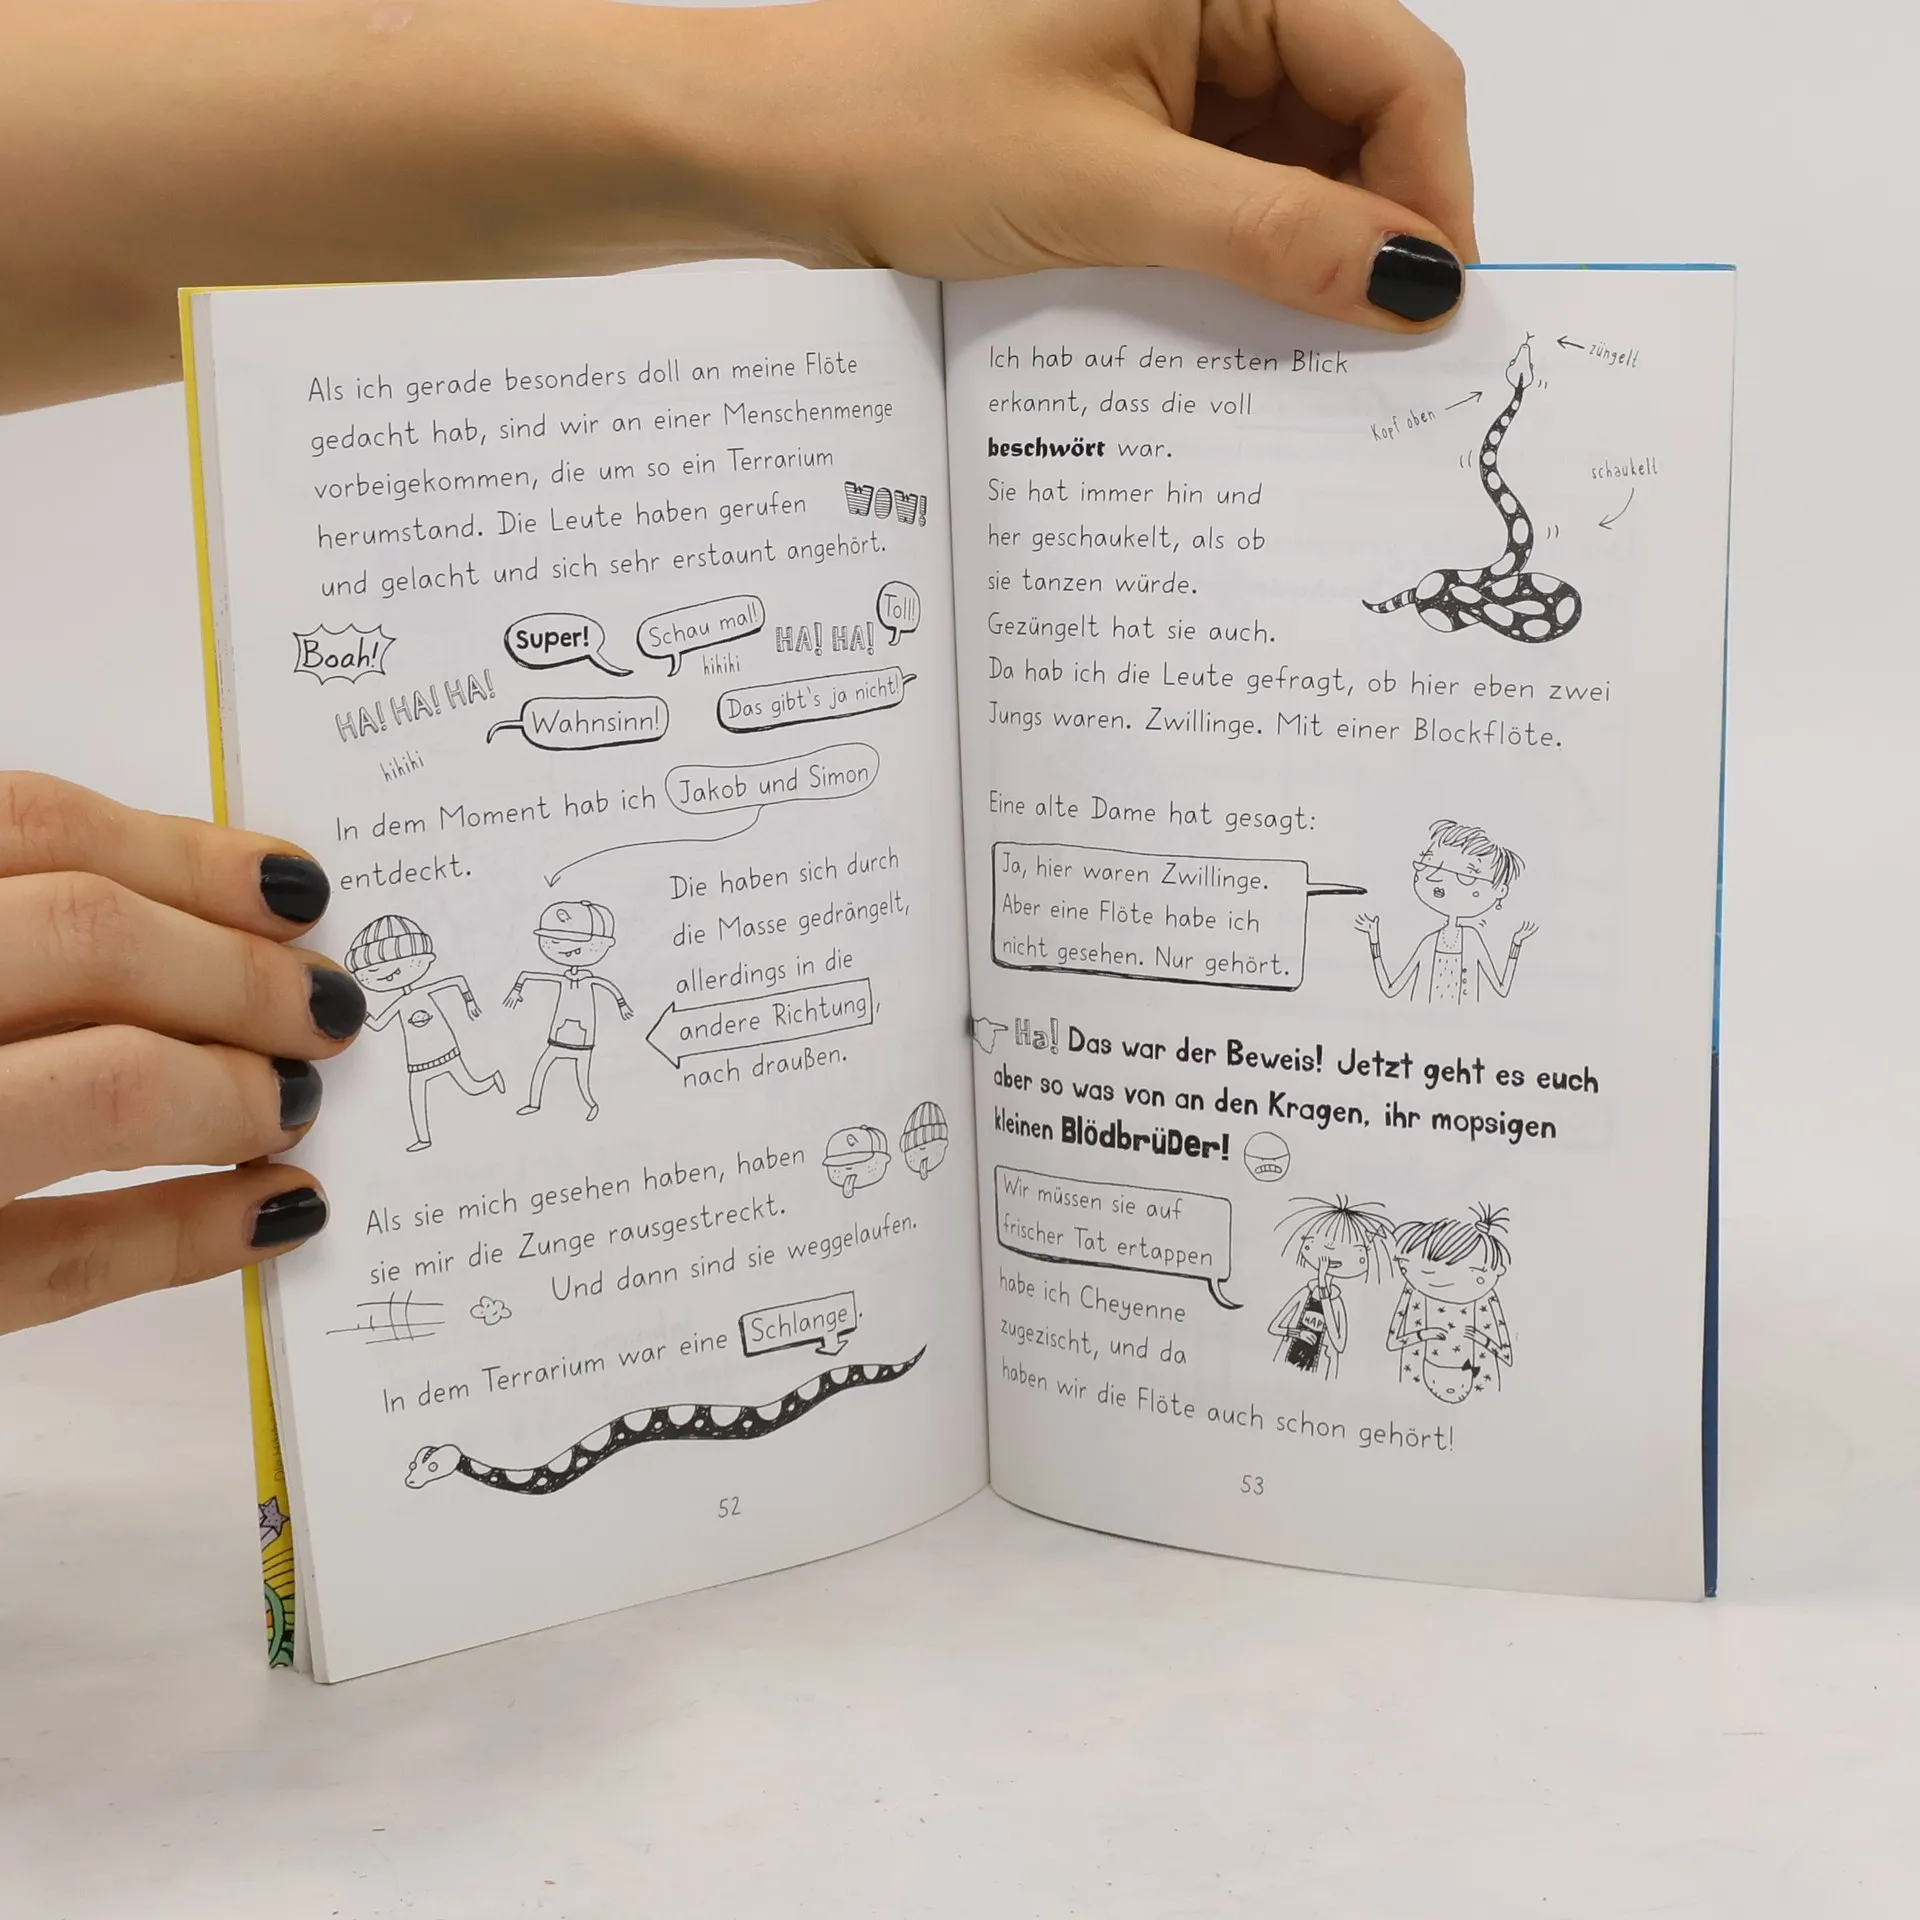 Als ich gerade besonders doll an meine Flöte
gedacht hab, sind wir an einer Menschenmenge
vorbeigekommen, die um so ein Terrarium
herumstand. Die Leute haben gerufen WOW!
und gelacht und sich sehr erstaunt angehört.
Boah!
Super!
Schau mal!
hihihi
HA! HA!
Toll!
HA! HA! HA!
hihihi
Wahnsinn!
Das gibt's ja nicht!
In dem Moment hab ich Jakob und Simon
entdeckt.
Die haben sich durch
die Masse gedrängelt,
allerdings in die
andere Richtung,
nach draußen.
Als sie mich gesehen haben, haben
sie mir die Zunge rausgestreckt.
Und dann sind sie weggelaufen.
In dem Terrarium war eine Schlange.
52
Ich hab auf den ersten Blick
erkannt, dass die voll
beschwört war.
Sie hat immer hin und
her geschaukelt, als ob
sie tanzen würde.
Gezüngelt hat sie auch.
züngelt
Kopf oben
schaukelt
Da hab ich die Leute gefragt, ob hier eben zwei
Jungs waren. Zwillinge. Mit einer Blockflöte.
Eine alte Dame hat gesagt:
Ja, hier waren Zwillinge.
Aber eine Flöte habe ich
nicht gesehen. Nur gehört.
Ha! Das war der Beweis! Jetzt geht es euch
aber so was von an den Kragen, ihr mopsigen
kleinen BlödbrüDer!
Wir müssen sie auf
frischer Tat ertappen
habe ich Cheyenne
zugezischt, und da
haben wir die Flöte auch schon gehört!
53